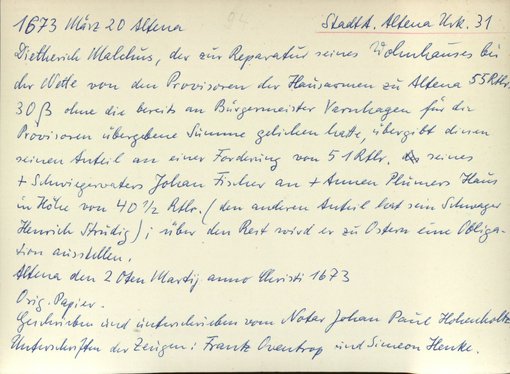 1673 März 20 Altena 94 StadtA. Altena Urk. 31
Dietherich Malchus, der zur Reparatur seines Wohnhauses bei
der Wette von den Provisoren der Hausarmen zu Altena 55 Rtlr.
30 ß ohne die bereits an Bürgermeister Varnhagen für die
Provisoren übergebene Summe geliehen hatte, übergibt diesen
seinen Anteil an einer Forderung von 51 Rtlr. seines
+ Schwiegervaters Johan Fischer an + Annen Plümers Haus
in Höhe von 40 1/2 Rtlr. (den anderen Anteil hat sein Schwager
Henrich Strüdig); über den Rest wird er zu Ostern eine Obliga-
tion ausstellen.
Altena den 20ten Martij anno Christi 1673
Orig. Papier.
Geschrieben und unterschrieben vom Notar Johan Paul Hohenholtz
Unterschriften der Zeugen: Frantz Oventrop und Simeon Henke.